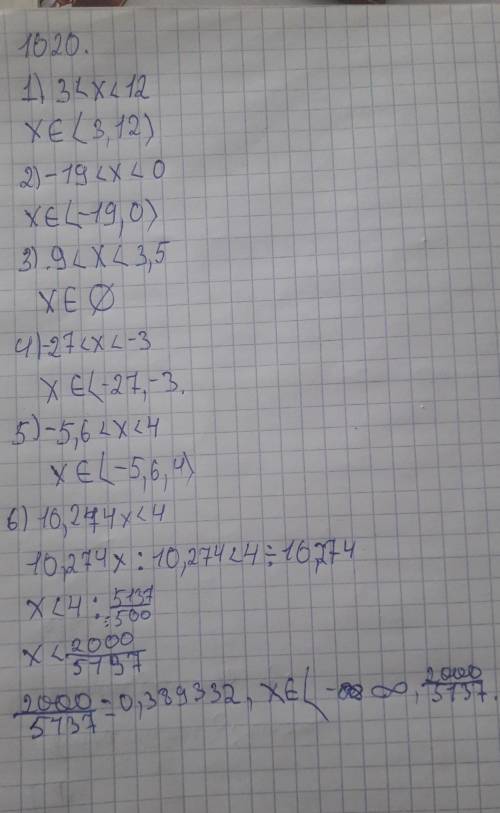 1020.
1) 3<x<12
x∈(3,12)
2) -19<x<0
x∈(-19,0)
3) .9<x<3,5
x∈∅
4) -27<x<-3
x∈(-27,-3.
5) -5,6<x<4
x∈(-5,6,4)
6) 10,274x<4
10,274x:10,274<4÷10,274
x<4:5137/500
x<2000/5137
2000/5137=0,389332, x∈(-∞,2000/5137.